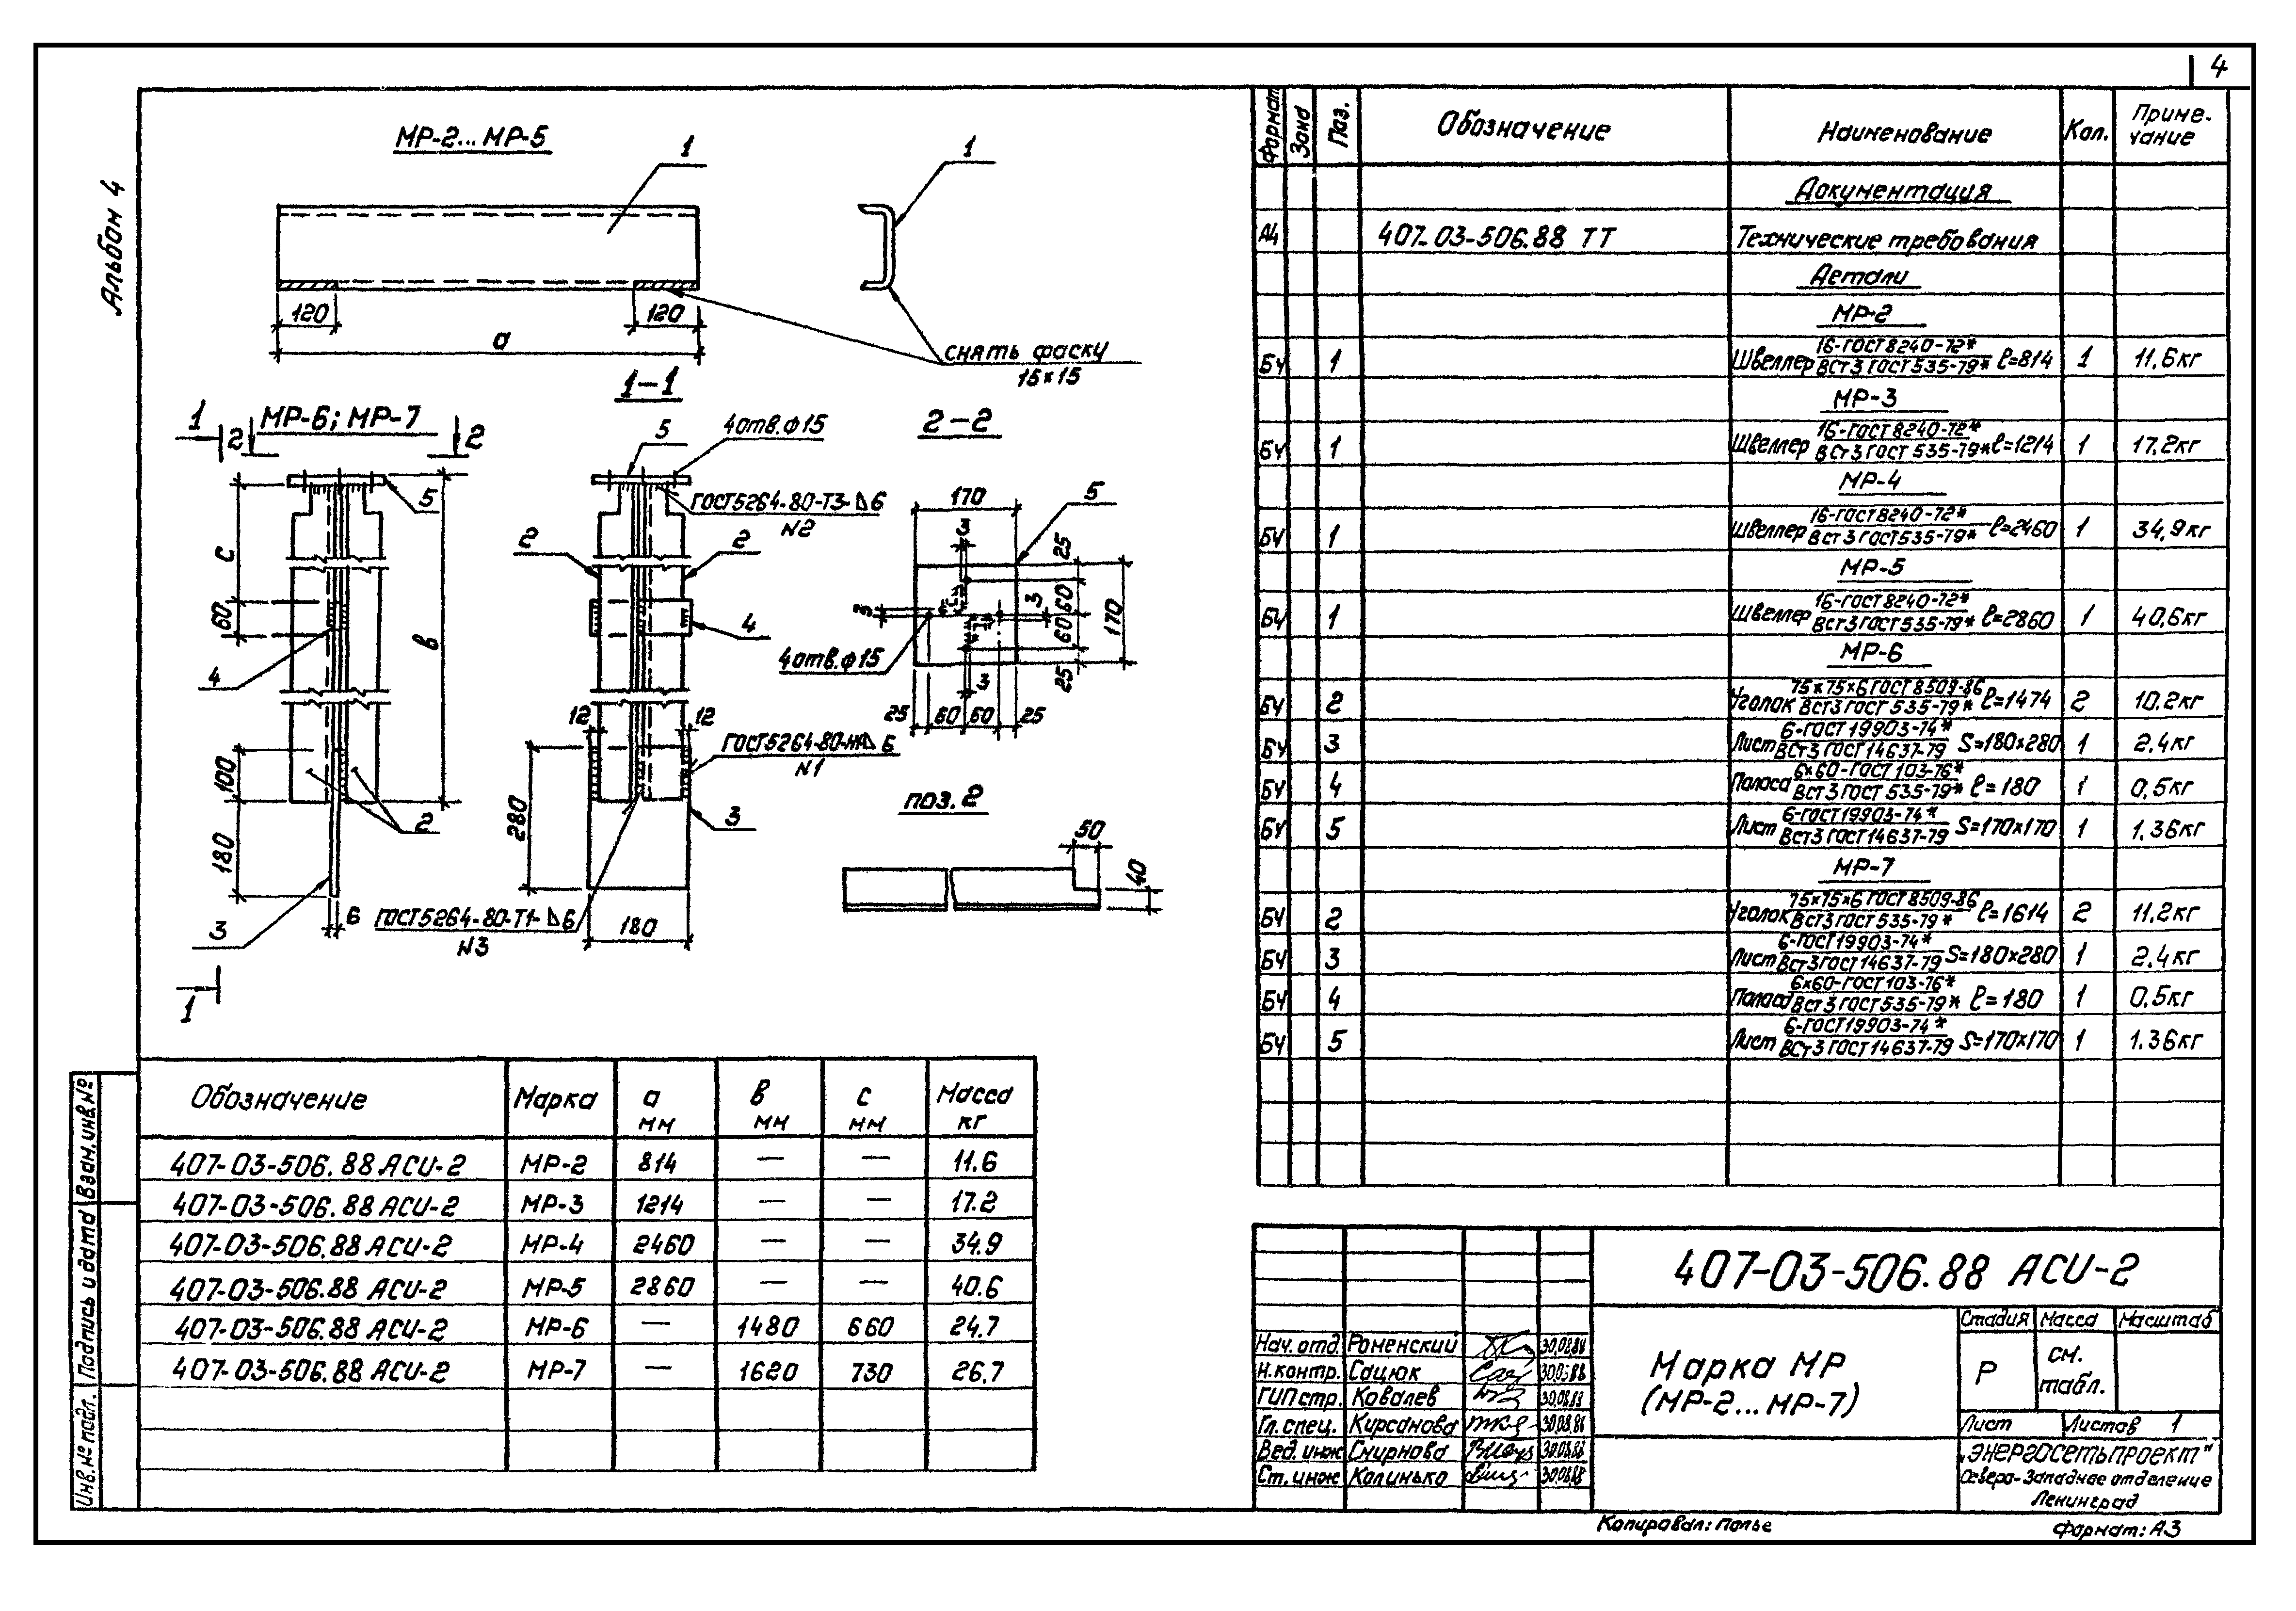 4
Альбом 4
МР-2... МР-5
1
1
120
120
а
снять фаску
15×15
1-1
МР-6; МР-7
1
2
2
5
4отв.ф15
2-2
5
ГОСТ5264-80-Т3-⊿6
№2
2
2
170
5
3
25
60
60
25
170
3
3
4отв.ф15
3
25
60
60
25
с
60
в
4
4
12
12
ГОСТ5264-80-Н1-⊿6
№1
100
180
280
2
3
3
6
ГОСТ5264-80-Т1-⊿6
№3
180
1
поз.2
50
40
Формат
Зона
Поз.
Обозначение
Наименование
Кол.
Приме-
чание
Документация
А4 407-03-506.88 ТТ Технические требования
Детали
МР-2
БЧ 1 Швеллер 16-ГОСТ 8240-72* / ВСт3 ГОСТ 535-79* ℓ=814 1 11,6кг
МР-3
БЧ 1 Швеллер 16-ГОСТ 8240-72* / ВСт3 ГОСТ 535-79* ℓ=1214 1 17,2кг
МР-4
БЧ 1 Швеллер 16-ГОСТ 8240-72* / ВСт3 ГОСТ 535-79* ℓ=2460 1 34,9кг
МР-5
БЧ 1 Швеллер 16-ГОСТ 8240-72* / ВСт3 ГОСТ 535-79* ℓ=2860 1 40,6кг
МР-6
БЧ 2 Уголок 75×75×6 ГОСТ 8509-86 / ВСт3 ГОСТ 535-79* ℓ=1474 2 10,2кг
БЧ 3 Лист 6-ГОСТ 19903-74* / ВСт3 ГОСТ 14637-79 S=180×280 1 2,4кг
БЧ 4 Полоса 6×60-ГОСТ 103-76* / ВСт3 ГОСТ 535-79* ℓ=180 1 0,5кг
БЧ 5 Лист 6-ГОСТ 19903-74* / ВСт3 ГОСТ 14637-79 S=170×170 1 1.36кг
МР-7
БЧ 2 Уголок 75×75×6 ГОСТ 8509-86 / ВСт3 ГОСТ 535-79* ℓ=1614 2 11,2кг
БЧ 3 Лист 6-ГОСТ 19903-74* / ВСт3 ГОСТ 14637-79 S=180×280 1 2.4кг
БЧ 4 Полоса 6×60-ГОСТ 103-76* / ВСт3 ГОСТ 535-79* ℓ=180 1 0.5кг
БЧ 5 Лист 6-ГОСТ 19903-74* / ВСт3 ГОСТ 14637-79 S=170×170 1 1.36кг
Обозначение Марка а мм в мм с мм Масса кг
407-03-506.88 АСИ-2 МР-2 814 — — 11.6
407-03-506.88 АСИ-2 МР-3 1214 — — 17.2
407-03-506.88 АСИ-2 МР-4 2460 — — 34.9
407-03-506.88 АСИ-2 МР-5 2860 — — 40.6
407-03-506.88 АСИ-2 МР-6 — 1480 660 24.7
407-03-506.88 АСИ-2 МР-7 — 1620 730 26.7
Взам.инв.№
Подпись и дата
Инв.№ подл.
407-03-506.88 АСИ-2
Нач. отд. Роменский 30.08.88
Н.контр. Сацюк 30.08.88
ГИПстр. Ковалев 30.08.88
Гл.спец. Кирсанова 30.08.88
Вед.инж Смирнова 30.08.88
Ст.инж Калинько 30.08.88
Марка МР
(МР-2...МР-7)
Стадия Масса Масштаб
Р см. табл.
Лист Листов 1
„Энергосетьпроект"
Северо-Западное отделение
Ленинград
Копировал: Полье
Формат: А3